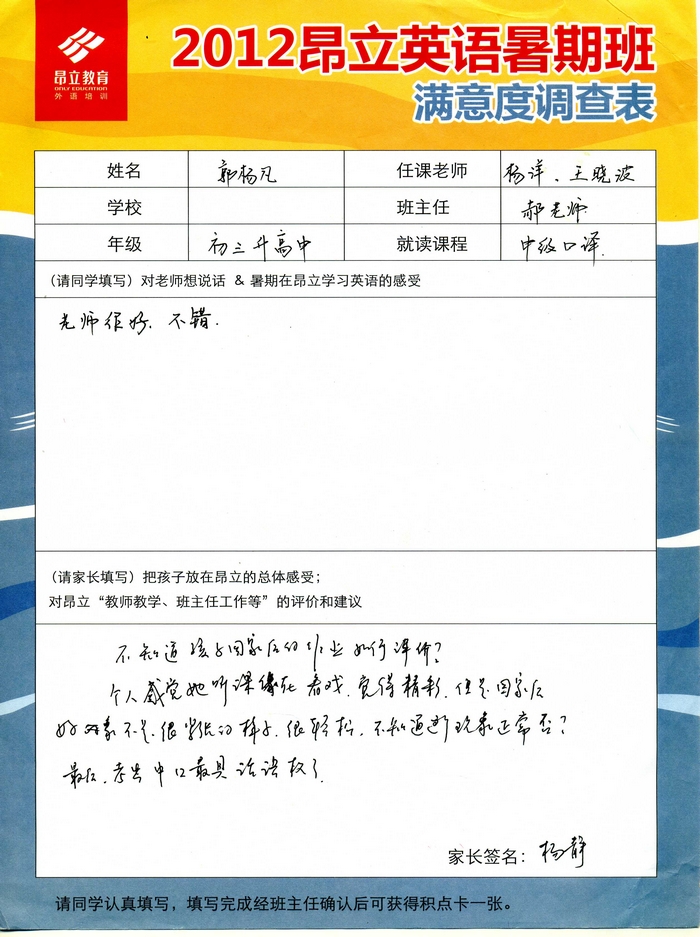 昂立教育
ONLY EDUCATION
外语培训
2012昂立英语暑期班
满意度调查表
姓名 郭杨凡 任课老师 杨洋、王晓波
学校 班主任 郝老师
年级 初三升高中 就读课程 中级口译
（请同学填写）对老师想说话 & 暑期在昂立学习英语的感受
老师很好，不错.
（请家长填写）把孩子放在昂立的总体感受；
对昂立“教师教学、班主任工作等”的评价和建议
不知道孩子回家后的作业如何评价？
个人感觉她听课像在看戏，觉得精彩，但是回家后
好象不是很紧张的样子，很轻松，不知道这现象正常否？
最后，考出中口最具话语权了.
家长签名：杨静
请同学认真填写，填写完成经班主任确认后可获得积点卡一张。